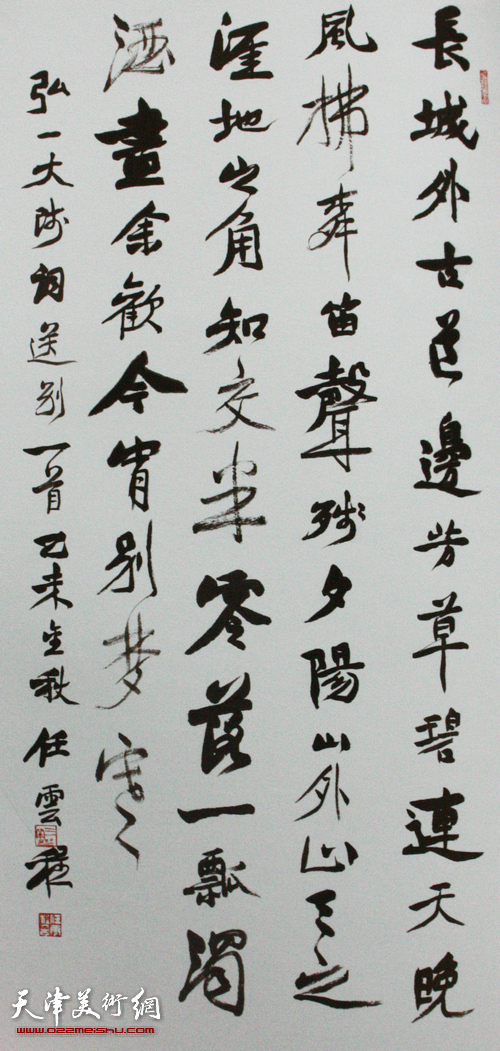 長城外古道邊芳草碧連天晚
風拂笛聲殘夕陽山外山天之
涯地之角知交半零落一瓢濁
酒盡余歡今宵別梦寒
弘一大師詞送別一首乙未金秋任雲
天津美術網
www.022meishu.com